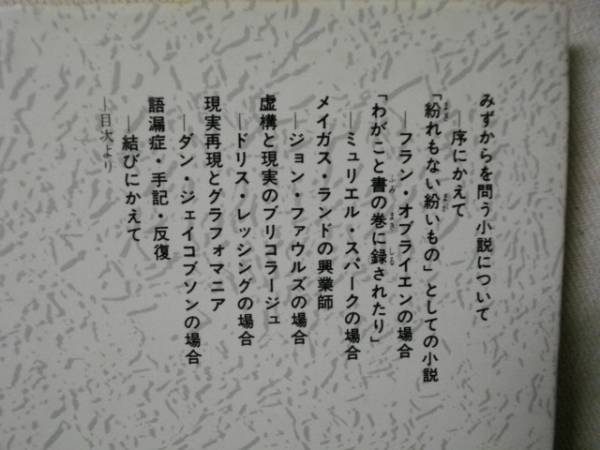 みずからを問う小説について
―序にかえて
「紛れもない紛いもの」としての小説
―フラン・オブライエンの場合
「わがこと書の巻に録されたり」
―ミュリエル・スパークの場合
メイガス・ランドの興業師
―ジョン・ファウルズの場合
虚構と現実のブリコラージュ
―ドリス・レッシングの場合
現実再現とグラフォマニア
―ダン・ジェイコブソンの場合
語漏症・手記・反復
―結びにかえて
―目次より